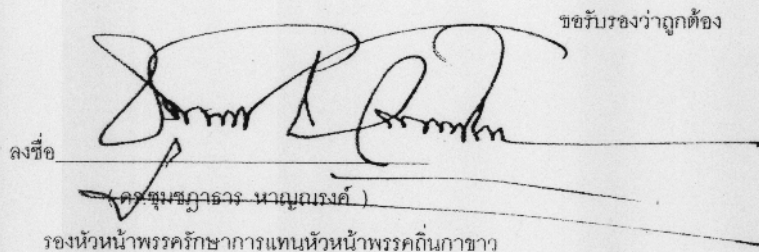 ขอรับรองว่าถูกต้อง
ลงชื่อ
( ดร.ชุมชฎาธาร หาญณรงค์ )
รองหัวหน้าพรรครักษาการแทนหัวหน้าพรรคถิ่นกาขาว